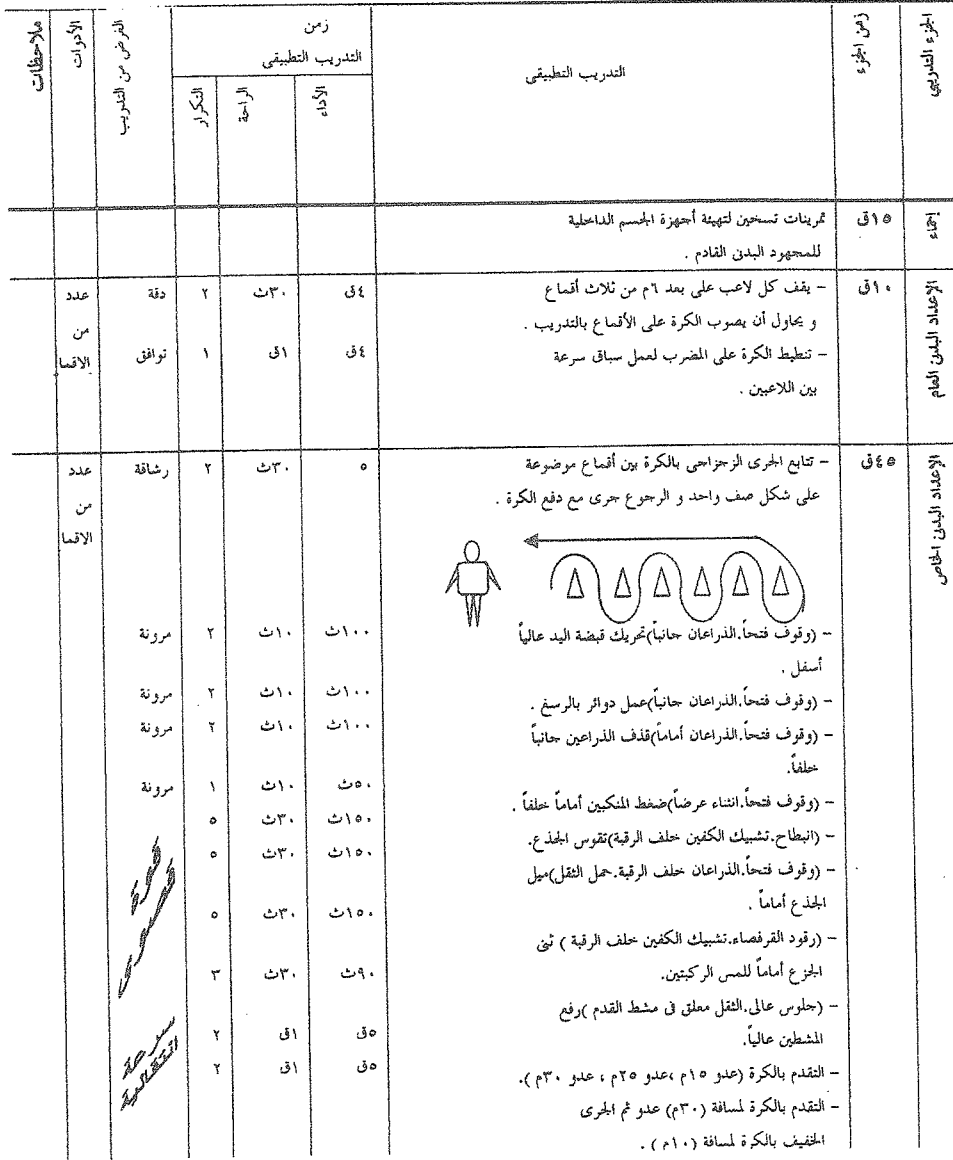 الجزء التدريبي
زمن الجزء
التدريب التطبيقى
زمن
التدريب التطبيقى
الأداء
الراحة
التكرار
الغرض من التدريب
الأدوات
ملاحظات
إحماء
١٥ق
تمرينات تسخين لتهيئة أجهزة الجسم الداخلية
للمجهود البدنى القادم .
الإعداد البدنى العام
١٠ق
- يقف كل لاعب على بعد ٦م من ثلاث أقماع
٤ق ٣٠ث ٢ دقة عدد
و يحاول أن يصوب الكرة على الأقماع بالتدريب .
من
- تنطيط الكرة على المضرب لعمل سباق سرعة
٤ق ١ق ١ توافق الاقما
بين اللاعبين .
الإعداد البدنى الخاص
٤٥ق
- تتابع الجرى الزجزاجى بالكرة بين أقماع موضوعة
٥ ٣٠ث ٢ رشاقة عدد
على شكل صف واحد و الرجوع جرى مع دفع الكرة .
من
الاقما
- (وقوف فتحاً.الذراعان جانباً)تحريك قبضة اليد عالياً
١٠٠ث ١٠ث ٢ مرونة
أسفل .
- (وقوف فتحاً.الذراعان جانباً)عمل دوائر بالرسغ .
١٠٠ث ١٠ث ٢ مرونة
- (وقوف فتحاً.الذراعان أماماً)قذف الذراعين جانباً
١٠٠ث ١٠ث ٢ مرونة
خلفاً.
- (وقوف فتحاً.انثناء عرضاً)ضغط المنكبين أماماً خلفاً .
٥٠ث ١٠ث ١ مرونة
- (انبطاح.تشبيك الكفين خلف الرقبة)تقوس الجذع.
١٥٠ث ٣٠ث ٥
- (وقوف فتحاً.الذراعان خلف الرقبة.حمل الثقل)ميل
١٥٠ث ٣٠ث ٥
الجذع أماماً .
- (رقود القرفصاء.تشبيك الكفين خلف الرقبة ) ثنى
١٥٠ث ٣٠ث ٥
الجزع أماماً للمس الركبتين.
- (جلوس عالى.الثقل معلق فى مشط القدم )رفع
٩٠ث ٣٠ث ٣
المشطين عالياً.
قوة قصوى
- التقدم بالكرة (عدو ١٥م ،عدو ٢٥م ، عدو ٣٠م ).
٥ق ١ق ٢
- التقدم بالكرة لمسافة (٣٠م) عدو ثم الجرى
٥ق ١ق ٢
الخفيف بالكرة لمسافة (١٠م ) .
سرعة
انتقالية